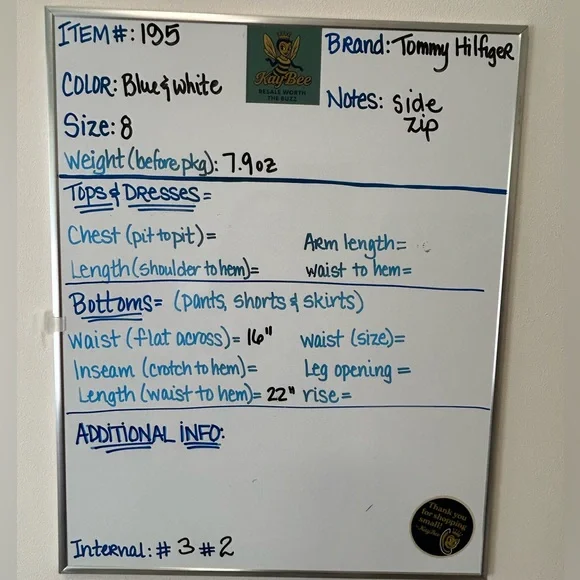 ITEM#: 195
Brand: Tommy Hilfiger
KayBee
RESALE WORTH
THE BUZZ
COLOR: Blue & White
Notes: side
zip
Size: 8
Weight (before pkg): 7.9oz
TOPS & DRESSES=
Chest (pit to pit)=
Arm length=
Length (shoulder to hem)=
waist to hem=
Bottoms= (pants, shorts & skirts)
Waist (flat across)= 16"
waist (size)=
Inseam (crotch to hem)=
Leg opening =
Length (waist to hem)= 22"
rise=
ADDITIONAL INFO:
Thank you
for shopping
small!
Internal: # 3 #2